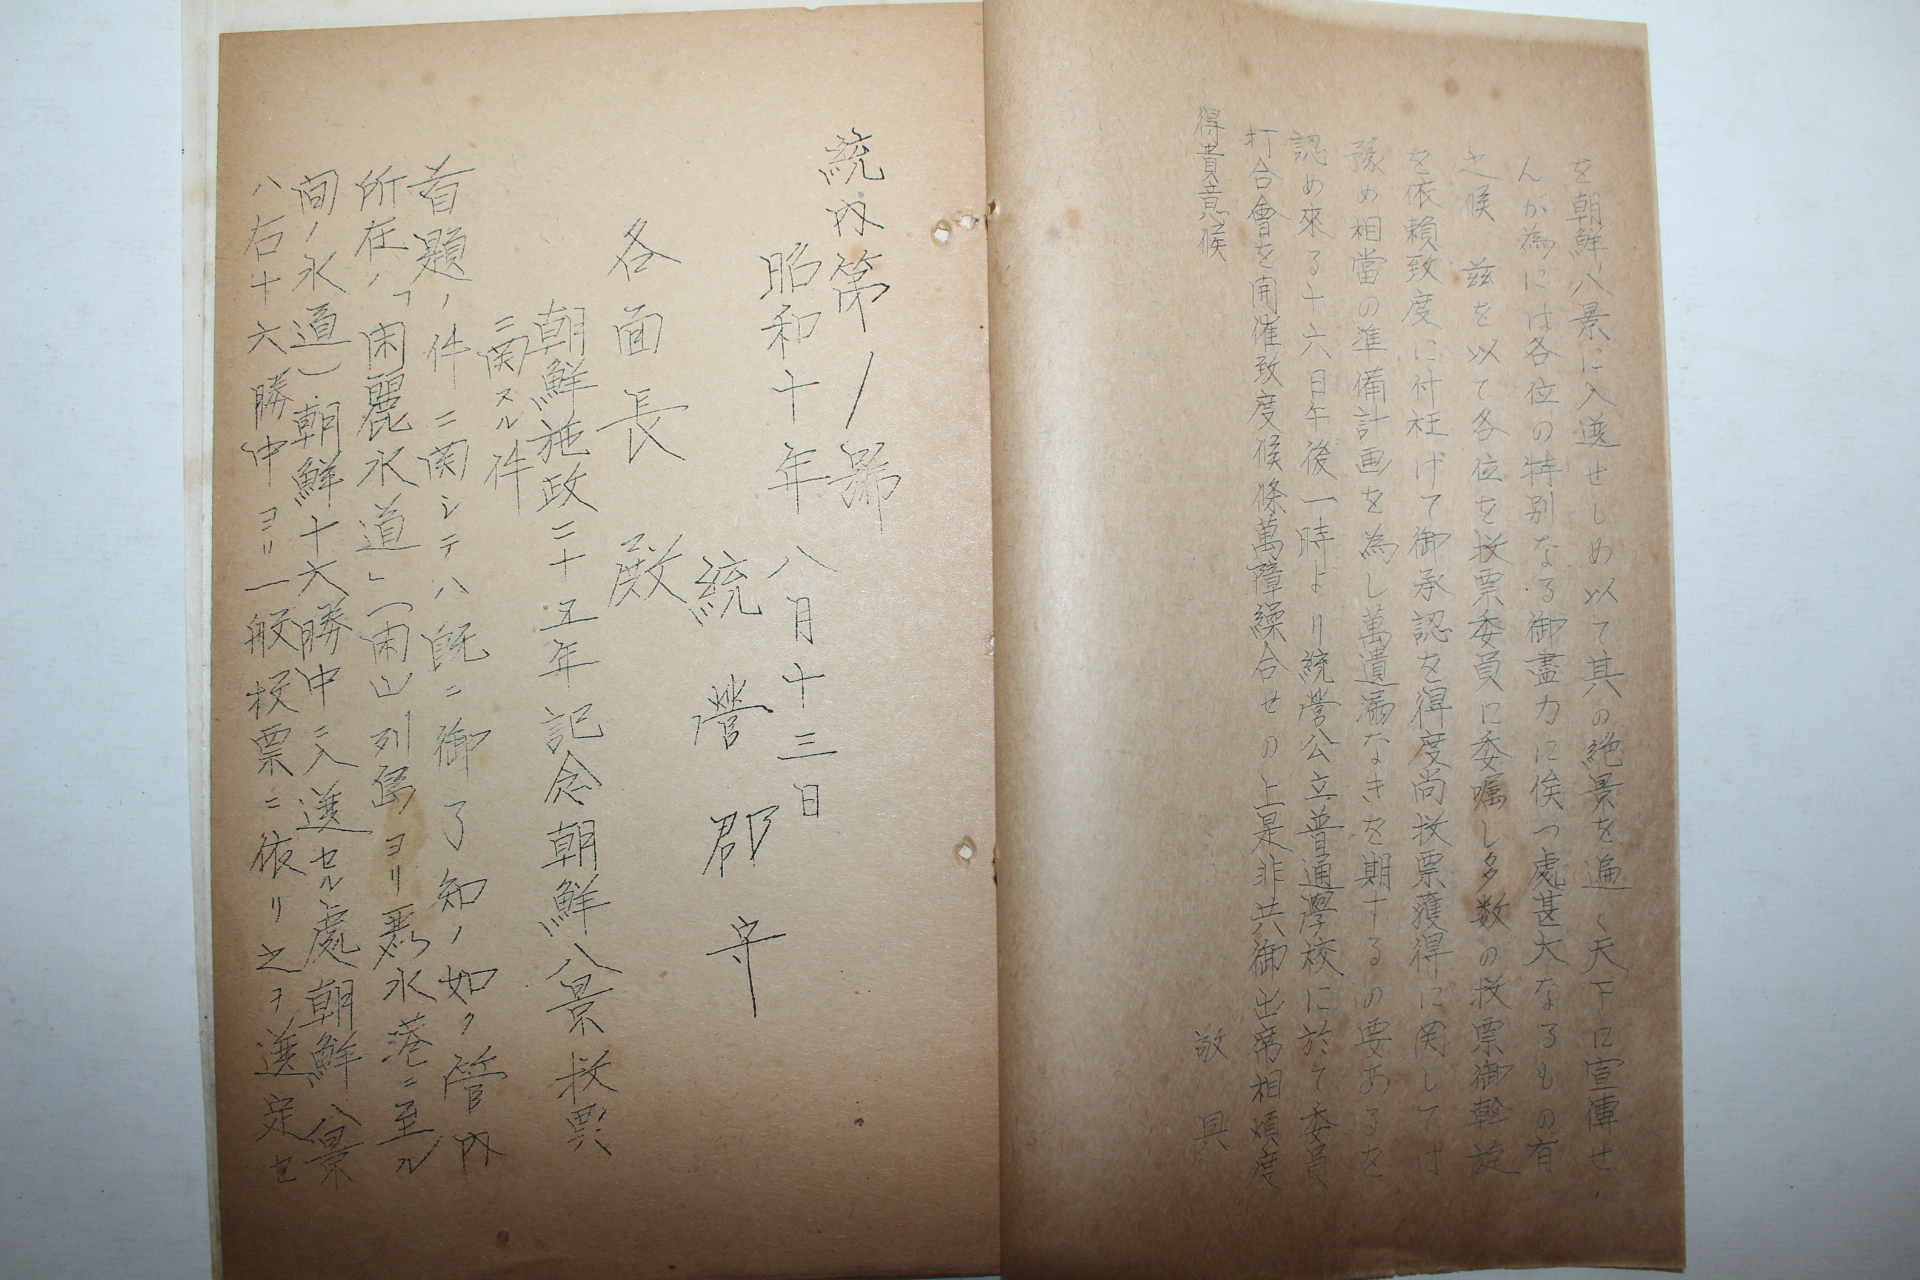 を朝鮮八景に入選せしめ以て其の絶景を遍く天下に宣傳せ
んが為には各位の特別なる御盡力に俟つ處甚大なるもの有
之候 茲を以て各位を投票委員に委嘱し多数の投票御斡旋
を依頼致度に付枉げて御承認を得度尚投票獲得に関しては
豫め相當の準備計画を為し萬遺漏なきを期するの要あるを
認め來る十六日午後一時より統營公立普通學校に於て委員
打合會を開催致度候條萬障繰合せの上是非共御出席相煩度
得貴意候
敬具
統内第 ノ 號
昭和十年八月十三日
統營郡守
各面長殿
朝鮮施政二十五年記念朝鮮八景投票
ニ関スル件
首題ノ件ニ関シテハ既ニ御了知ノ如ク管内
所在ノ「閑麗水道」(閑山列島ヨリ麗水港ニ至ル
間ノ水道)朝鮮十六勝中ニ入選セル處朝鮮八景
ハ右十六勝中ヨリ一般投票ニ依リ之ヲ選定セ